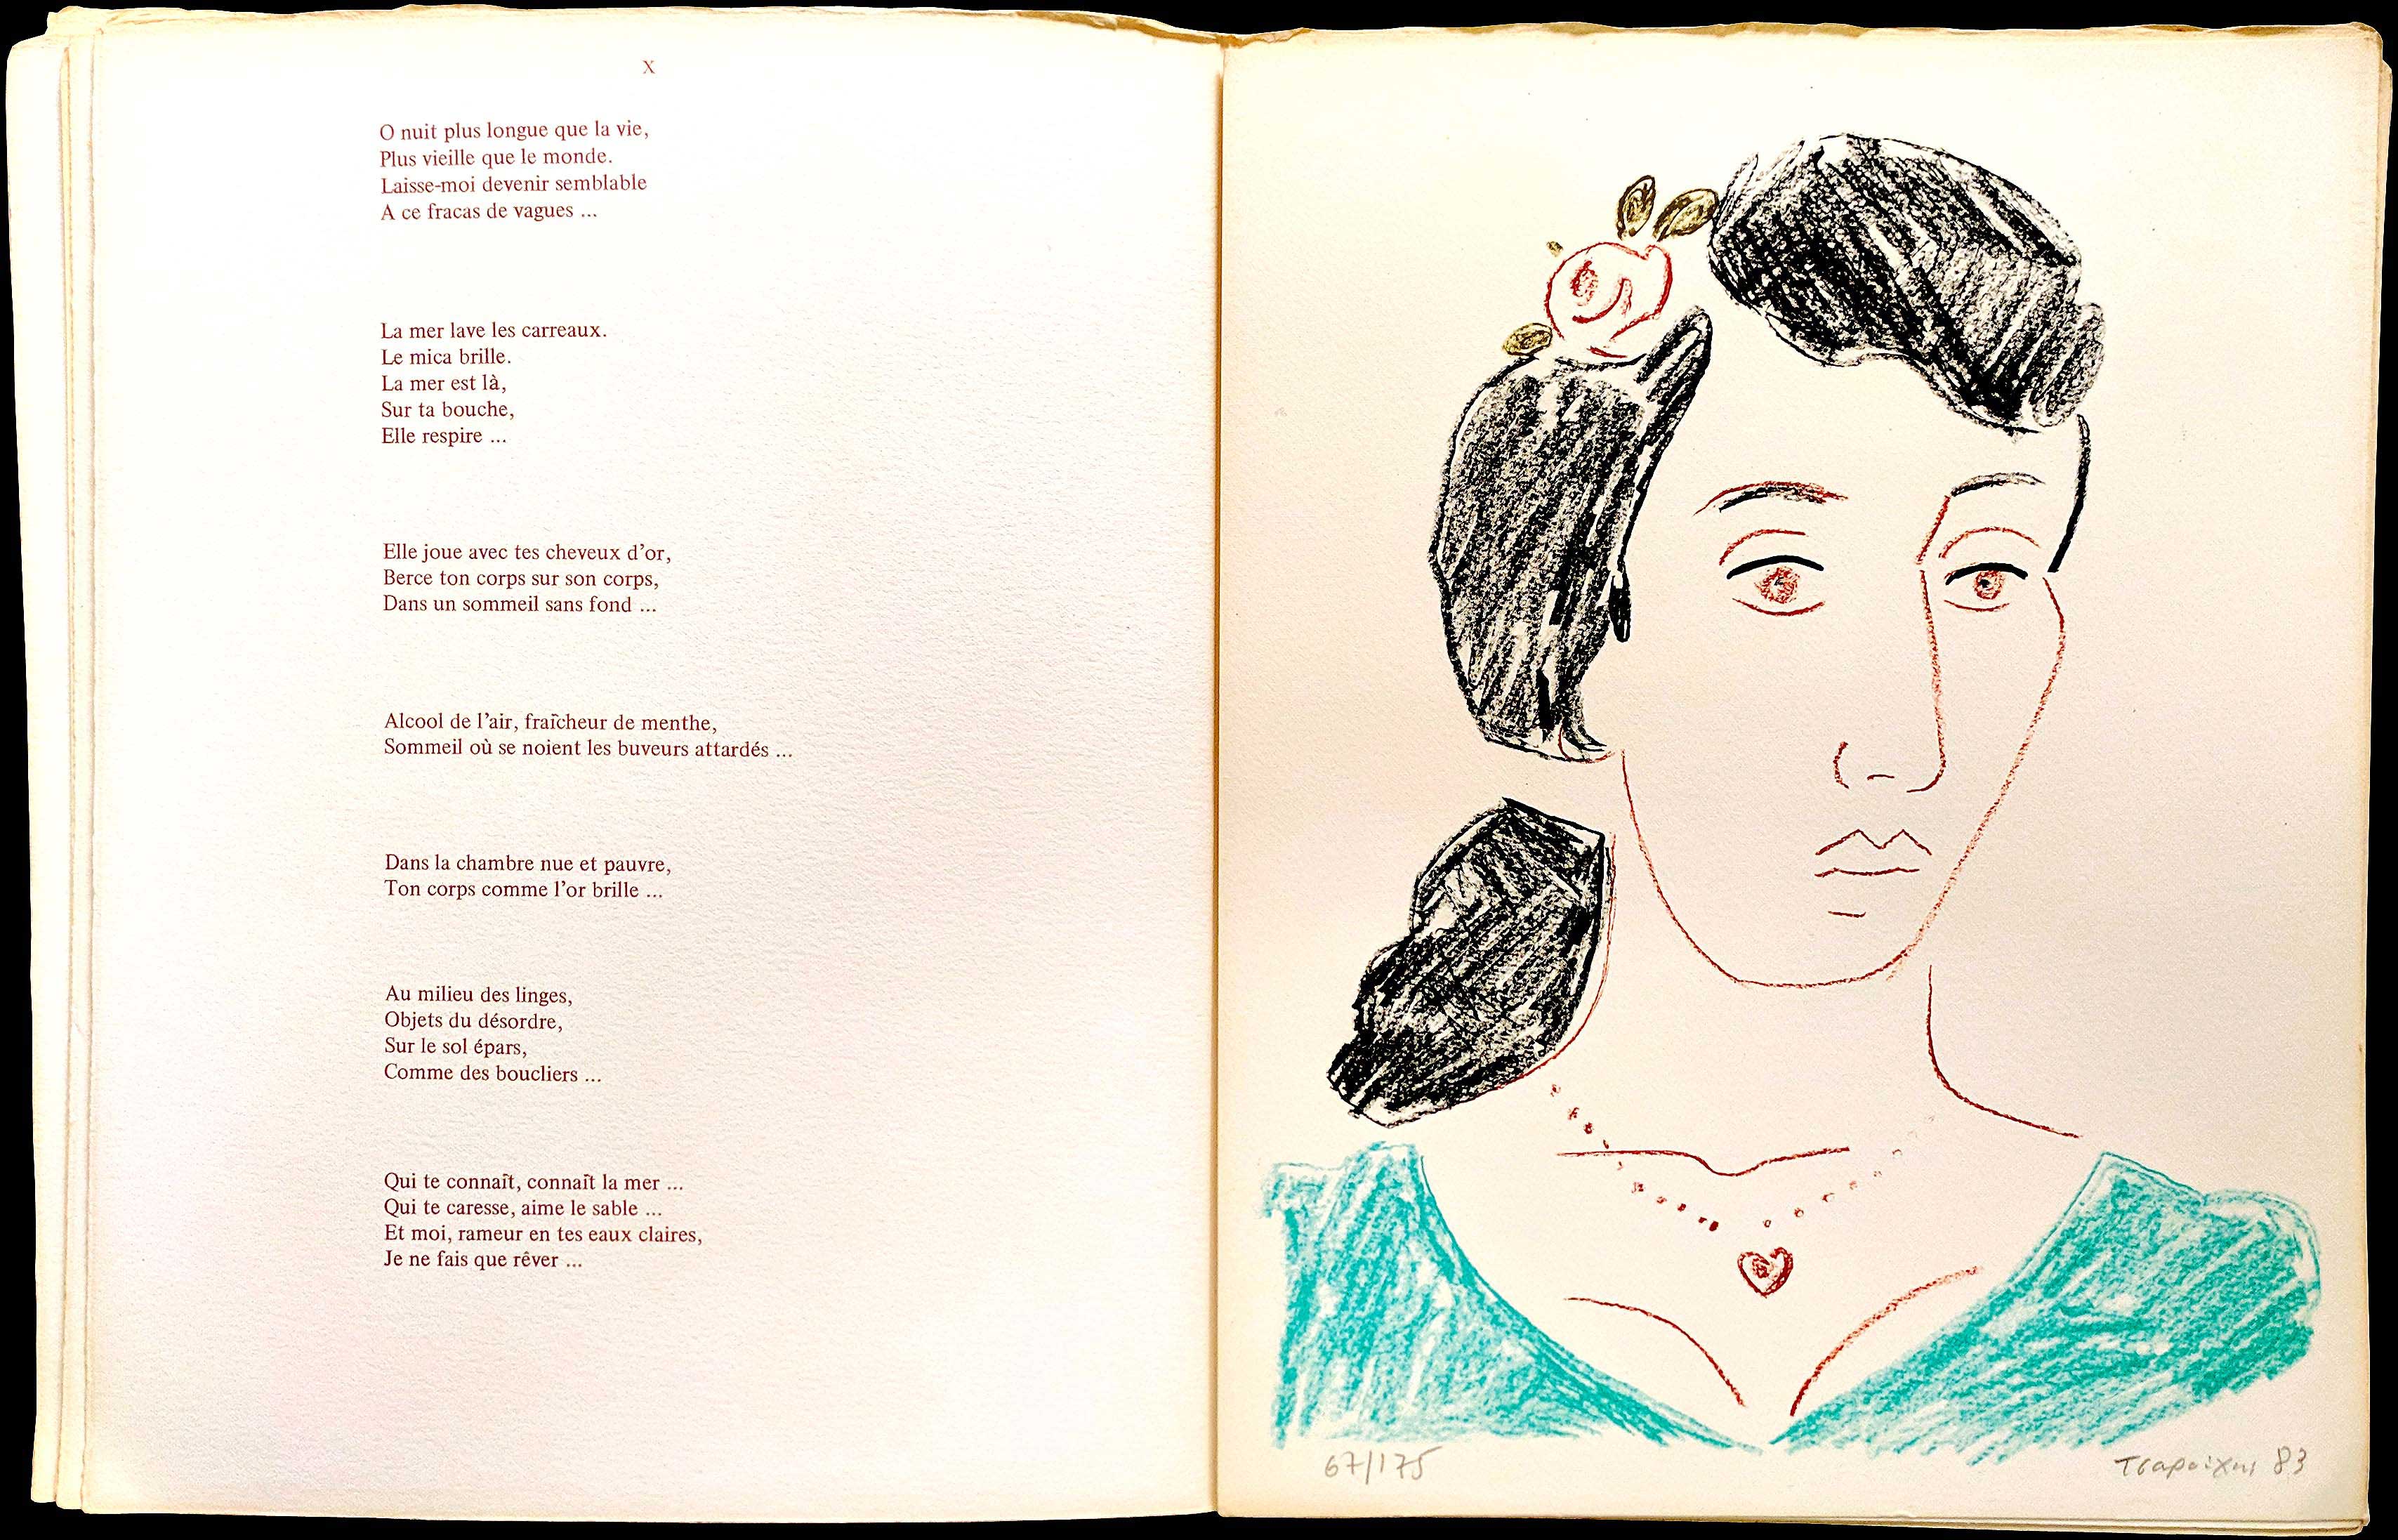 X
O nuit plus longue que la vie,
Plus vieille que le monde.
Laisse-moi devenir semblable
A ce fracas de vagues ...
La mer lave les carreaux.
Le mica brille.
La mer est là,
Sur ta bouche,
Elle respire ...
Elle joue avec tes cheveux d’or,
Berce ton corps sur son corps,
Dans un sommeil sans fond ...
Alcool de l’air, fraîcheur de menthe,
Sommeil où se noient les buveurs attardés ...
Dans la chambre nue et pauvre,
Ton corps comme l’or brille ...
Au milieu des linges,
Objets du désordre,
Sur le sol épars,
Comme des boucliers ...
Qui te connaît, connaît la mer ...
Qui te caresse, aime le sable ...
Et moi, rameur en tes eaux claires,
Je ne fais que rêver ...
67/175
Τσαρούχης 83